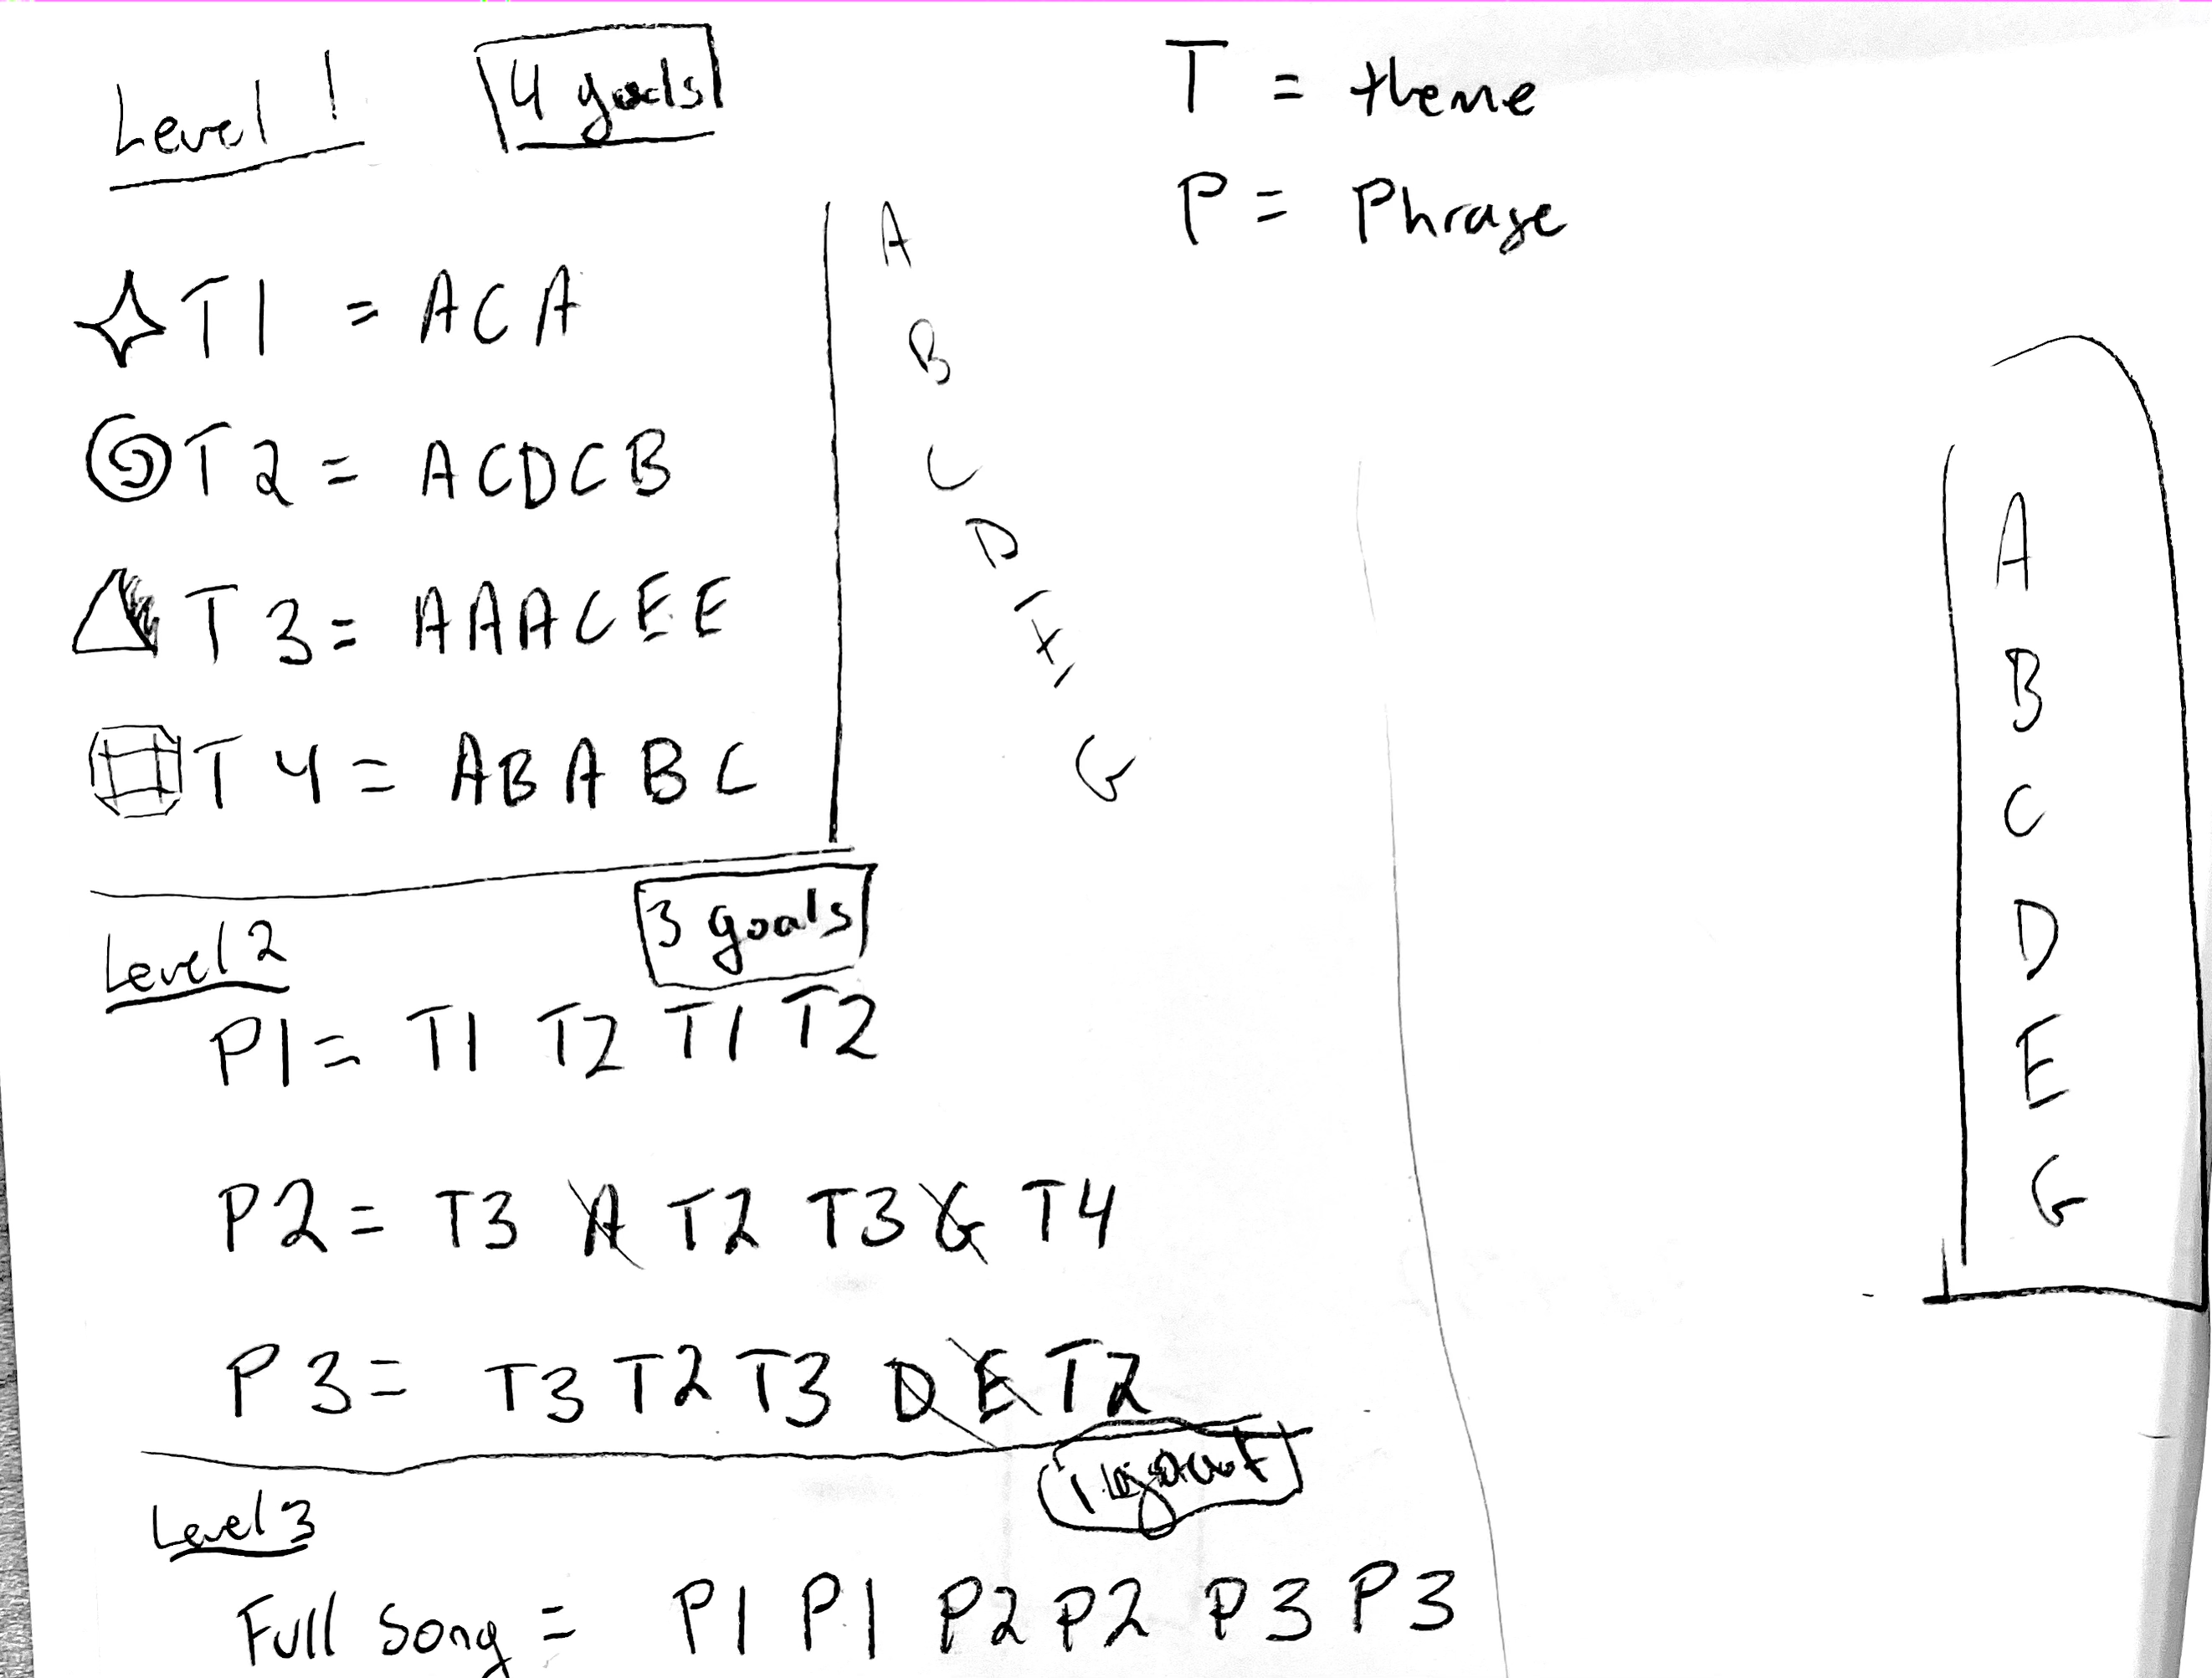 Level 1
4 goals
T = theme
P = Phrase
T1 = ACA
T2 = ACDCB
T3 = AAACEE
T4 = ABABC
A
B
C
D
E
G
A
B
C
D
E
G
Level 2
3 goals
P1 = T1 T2 T1 T2
P2 = T3 A T2 T3 G T4
P3 = T3 T2 T3 D E T2
Level 3
1
Full Song = P1 P1 P2 P2 P3 P3